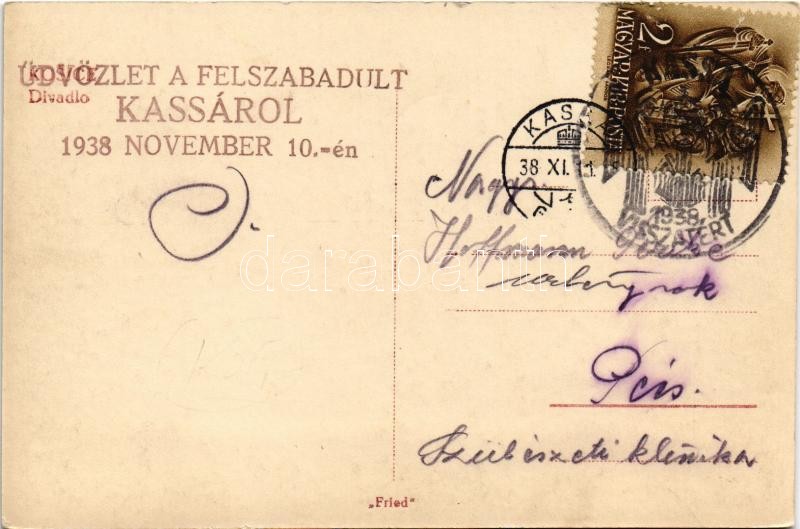 ÜDVÖZLET A FELSZABADULT
KOŠICE
Divadlo
KASSÁROL
1938 NOVEMBER 10.=én
MAGYAR KIR. POSTA
2 f
KAS
38 XI.
1938.
VISSZATÉRT
Nagys.
Hoffmann
Pécs.
Szülészeti klinika
darabanth
„Fried"